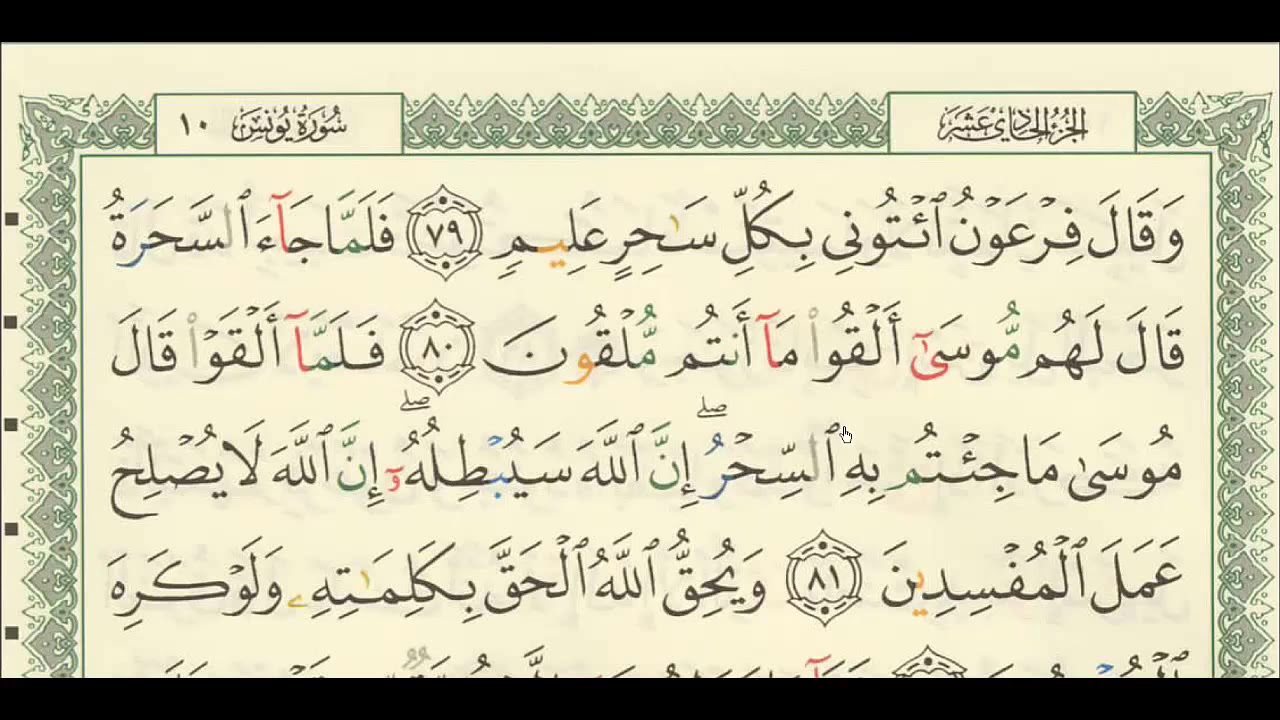 الجزء الحادي عشر
سورة يونس ١٠
وَقَالَ فِرْعَوْنُ ٱئْتُونِى بِكُلِّ سَٰحِرٍ عَلِيمٍ ٧٩ فَلَمَّا جَآءَ ٱلسَّحَرَةُ
قَالَ لَهُم مُّوسَىٰٓ أَلْقُوا۟ مَآ أَنتُم مُّلْقُونَ ٨٠ فَلَمَّآ أَلْقَوْا۟ قَالَ
مُوسَىٰ مَا جِئْتُم بِهِ ٱلسِّحْرُ ۖ إِنَّ ٱللَّهَ سَيُبْطِلُهُۥٓ ۖ إِنَّ ٱللَّهَ لَا يُصْلِحُ
عَمَلَ ٱلْمُفْسِدِينَ ٨١ وَيُحِقُّ ٱللَّهُ ٱلْحَقَّ بِكَلِمَٰتِهِۦ وَلَوْ كَرِهَ